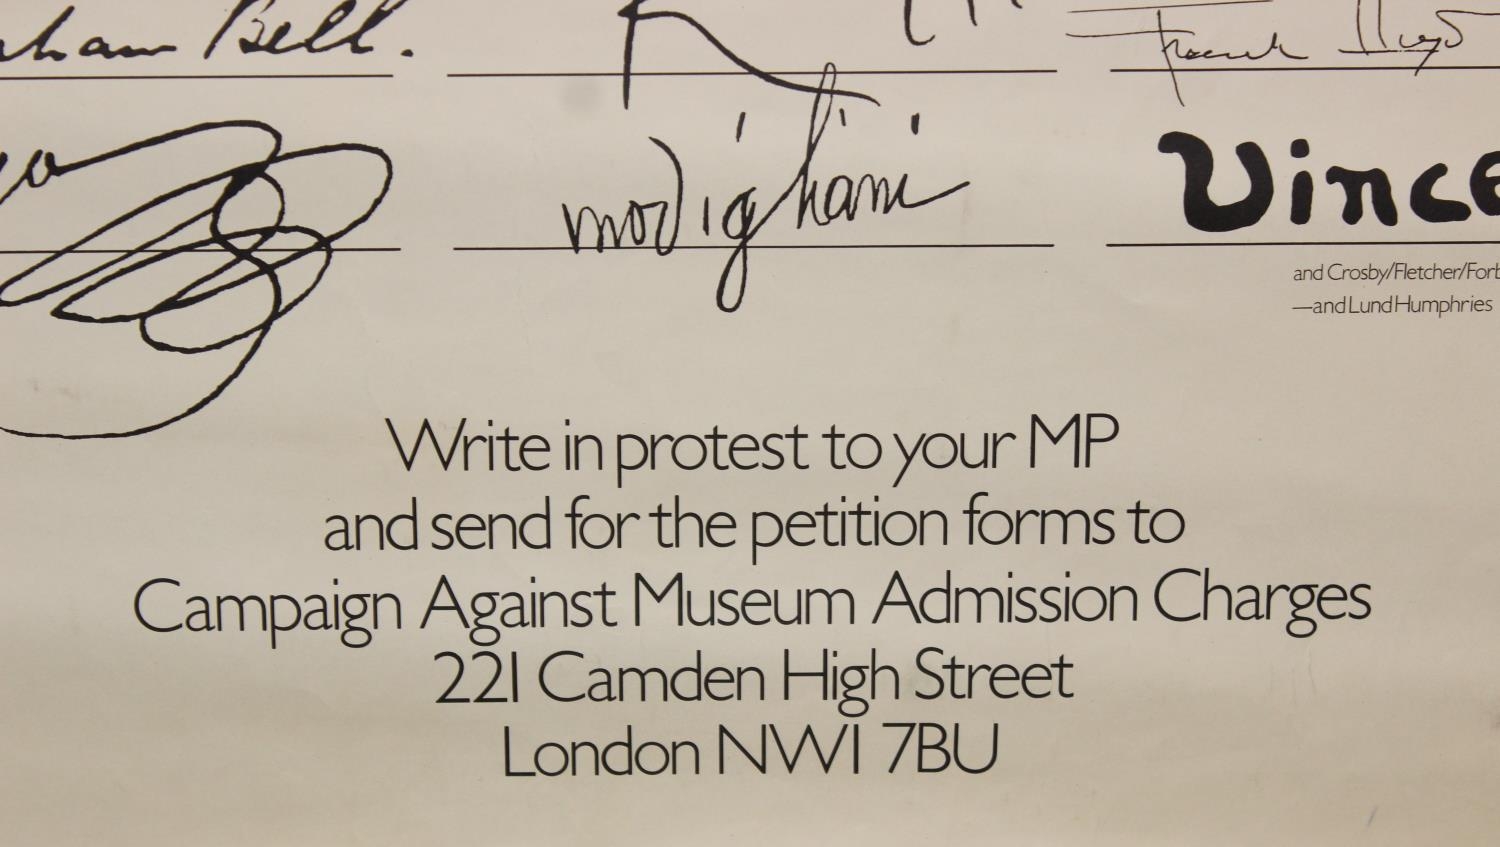 Bell.
Frank Lloyd
modigliani
and Crosby/Fletcher/Forb
—and Lund Humphries
Write in protest to your MP
and send for the petition forms to
Campaign Against Museum Admission Charges
221 Camden High Street
London NW1 7BU